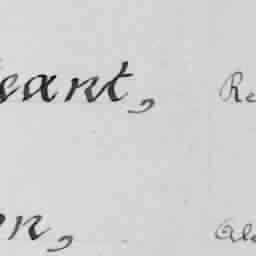 eant, Re
on, Ale